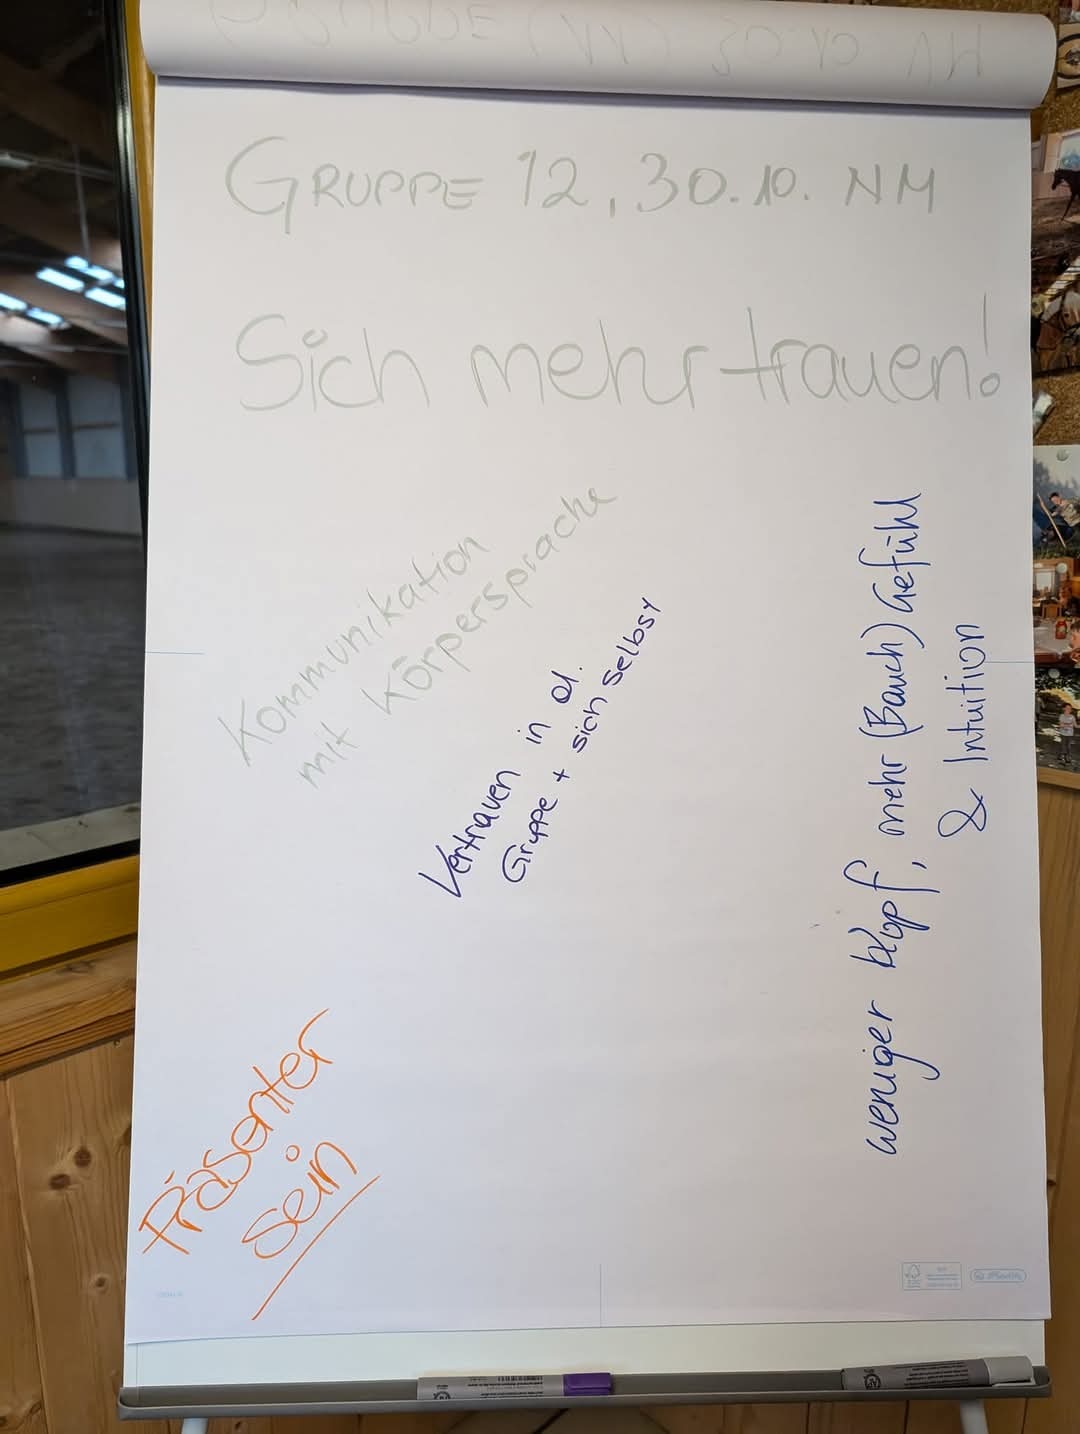 GRUPPE 12, 30.10. NM
Sich mehr trauen!
Kommunikation
mit Körpersprache
Vertrauen in d.
Gruppe + sich selbst
weniger Kopf, mehr (Bauch) Gefühl
& Intuition
Präsenter
sein